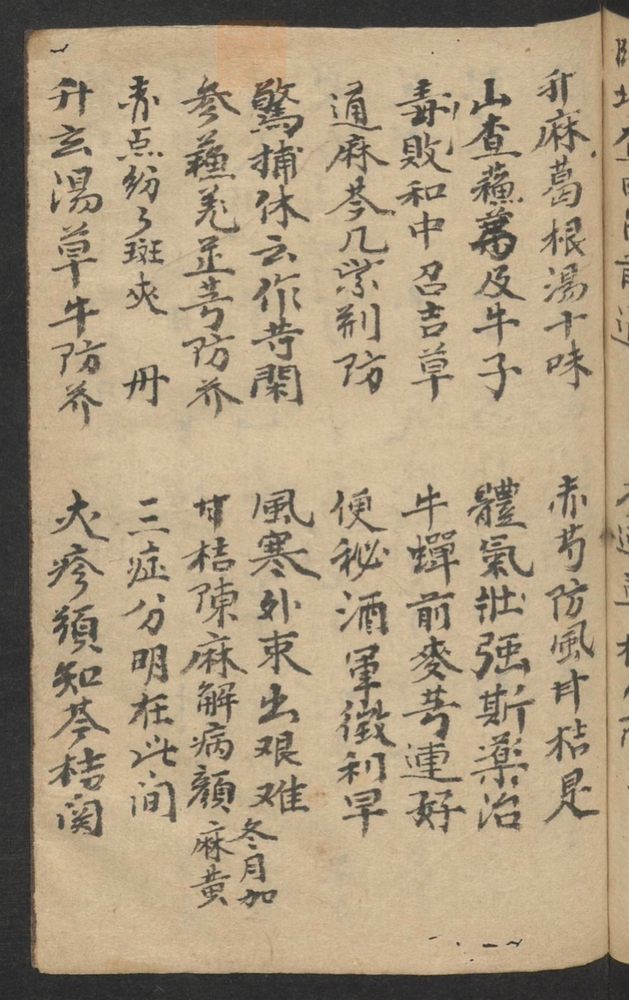 升麻葛根湯十味　赤芍防風甘桔是
山查蘓荷及牛子　體氣壯强斯藥治
毒敗和中召吉草　牛蟬前麥芎連好
通麻芩几紫荆防　便秘酒軍徴利早
驚捕休云作昔閑　風寒外束出艰难
参蘓羌芷芎防芥　甘桔陳麻解病顏 冬月加麻黄
赤点紛々斑爽　丹　三症分明在此间
升玄湯草牛防芥　大疹須知芩桔関